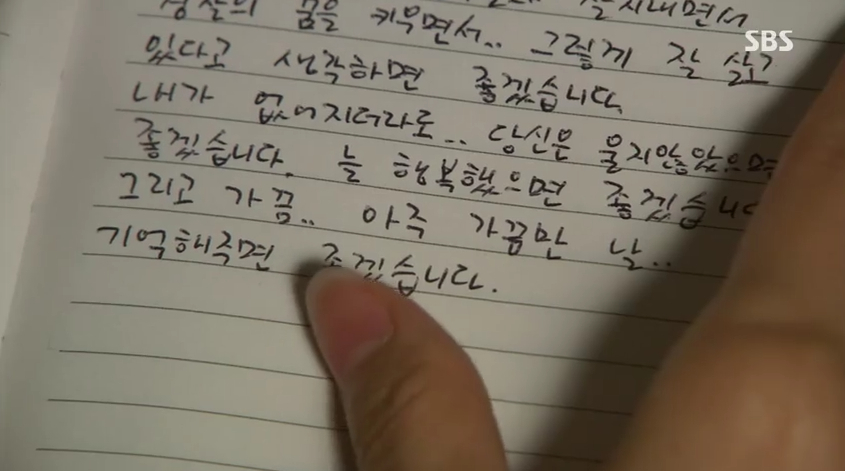 SBS
꿈을 키우면서.. 그렇게 잘 살고
있다고 생각하면 좋겠습니다.
내가 없어지더라도.. 당신은 울지않았으면
좋겠습니다. 늘 행복했으면 좋겠습니다
그리고 가끔.. 아주 가끔만 날..
기억해주면 좋겠습니다.